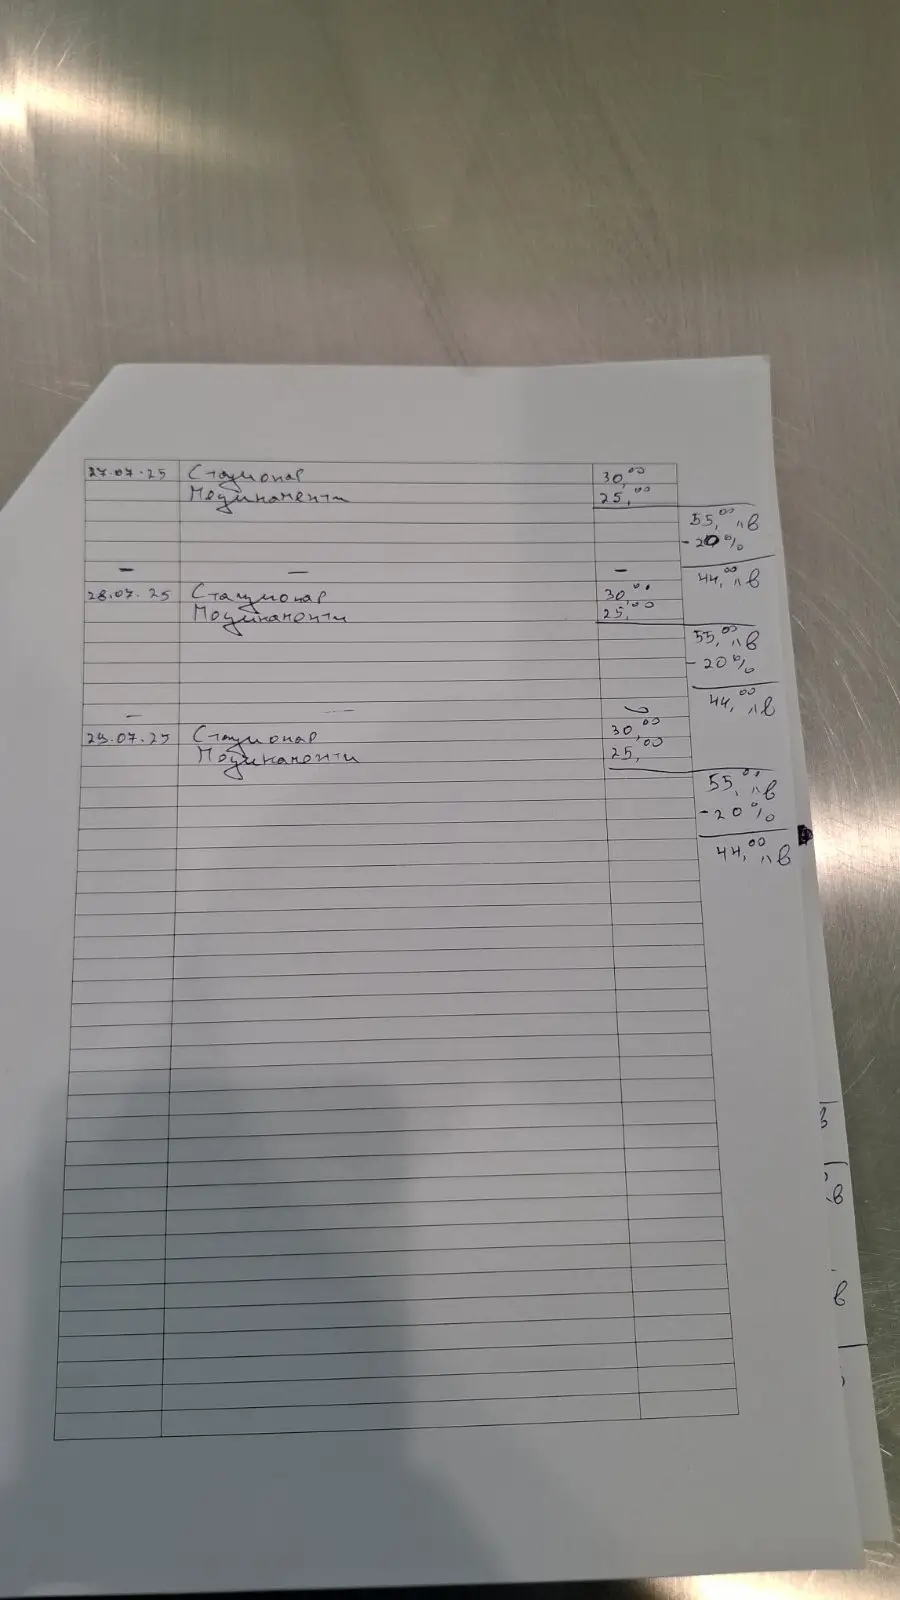 27.07.25 Стационар 30,00
Медикаменти 25,00
55,00 лв
- 20%
44,00 лв
— — —
28.07.25 Стационар 30,00
Медикаменти 25,00
55,00 лв
- 20%
44,00 лв
— — —
29.07.25 Стационар 30,00
Медикаменти 25,00
55,00 лв
- 20%
44,00 лв
в
в